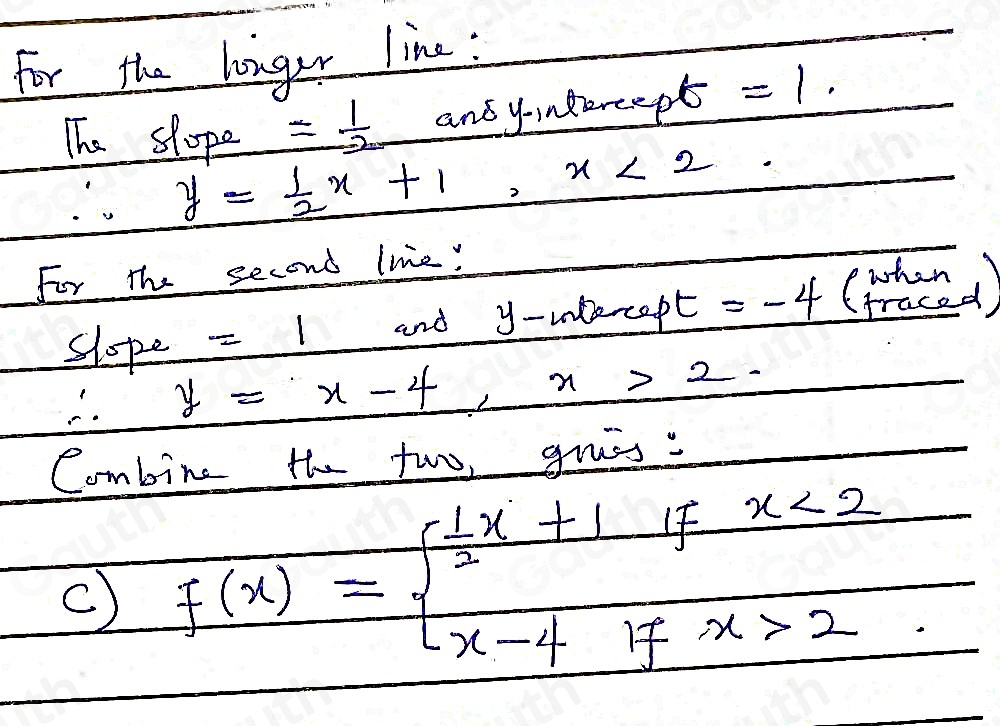 For the longer line:
The slope = 1/2 and y-intercept = 1.
∴ y = 1/2 x + 1 , x < 2 .
For the second line:
slope = 1 and y-intercept = -4 (when traced)
∴ y = x - 4 , x > 2.
Combine the two, gives:
c) f(x) = { 1/2 x + 1 if x < 2
x - 4 if x > 2 .